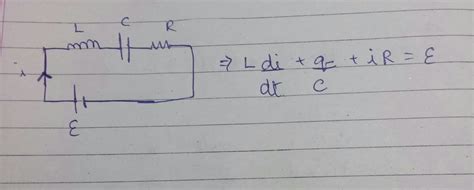 L C R
i
⇒ L di/dt + q/C + iR = ε
ε